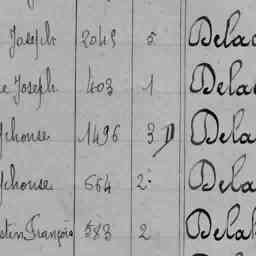 Joseph 2045 5 Dela
e Joseph 403 1 Dela
phonse 1496 3 Dela
phonse 554 2 Dela
stin François 583 2 Dela